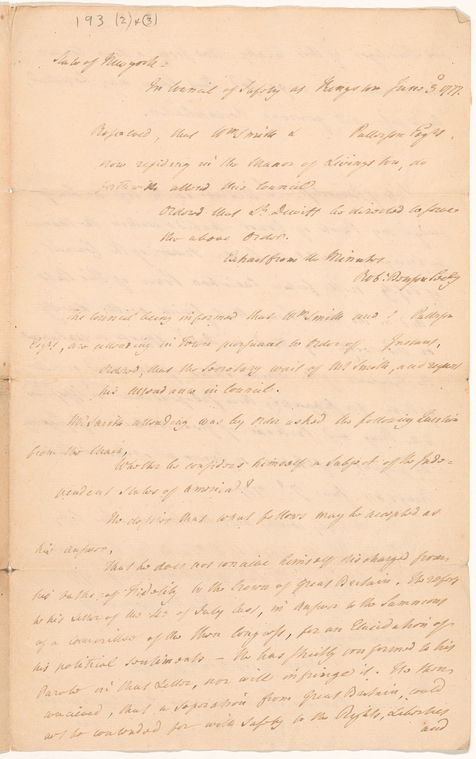 193 (2) & (3)
State of New york:
In Council of Safety at Kingston June 3d 1777.
Resolved, that Wm Smith & Patterson Esqrs.
now residing in the Manor of Livingston, do
forthwith attend this Council.
Ordered that Lt. Dewitt be directed to serve
the above Order.
Extract from the Minutes
Robt. Benson Secry
The Council being informed that Wm Smith and Patterson
Esqrs, are attending in Town pursuant to Order of Instant,
Ordered, that the Secretary wait of Mr Smith, and request
his Attendance in Council.
Mr Smith attending was by order asked the following Question
from the Chair,
Whether he considers himself a Subject of the Inde-
pendent States of America?
He desires that what follows may be accepted as
his answer.
That he does not conceive himself discharged from
his oaths of Fidelity to the Crown of Great Britain. He refers
to his Letter of the 4th of July last, in answer to the Summons
of a Committee of the then Congress, for an Elucidation of
his political sentiments – He has strictly conformed to his
Parole in that Letter, nor will infringe it. He then
conceived, that a Separation from Great Britain, could
not be contended for with Safety to the Rights, Liberties
and